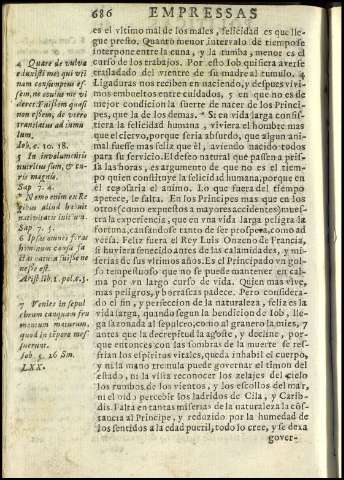 686 EMPRESSAS
es el vltimo mal de los males, felicidad es que llegue presto. Quanto menor intervalo de tiempo se
interpone entre la cuna, y la tumba, menor es el
curso de los trabajos. Por esto Iob quisiera averse
trasladado del vientre de su madre al tumulo. 4
Ligaduras nos reciben en naciendo, y despues vivimos embueltos entre cuidados, 5 en que no es de
mejor condicion la suerte de nacer de los Principes, que la de demas. * Si en vida larga consistiera la felicidad humana, viviera el hombre mas
que el ciervo, porque seria absurdo, que algun animal fuesse mas feliz que èl, aviendo nacido todos
para su servicio. El deseo natural que passen a prisa las horas, es argumento de que no es el tiempo quien constituye la felicidad humana, porque en
èl reposaria el animo. Lo que fuera del tiempo
apetece, le falta. En los Principes mas que en los
otros (como expuestos a mayores accidentes) muestra la experiencia, que en vna vida larga peligra la
fortuna, cansandose tanto de ser prospera, como adversa. Feliz fuera el Rey Luis Onzeno de Francia,
si huviera fenecido antes de las calamidades, y miserias de sus vltimos años. Es el Principado vn golfo tempestuoso que no se puede mantener en calma por vn largo curso de vida. Quien mas vive,
mas peligros, y borrascas padece. Pero considerado el fin, y perfeccion de la naturaleza, feliz es la
vida larga, quando segun la bendicion de Iob, llega sazonada al sepulcro, como al granero la mies, 7
antes que la decrepitud la agoste, y decline, porque entonces con las sombras de la muerte se resfrian los espiritus vitales, queda inhabil el cuerpo,
y ni la mano tremula puede governar el timon del
estado, ni la vista reconocer los zelajes del cielo
los rumbos de los vientos, y los escollos del mar,
ni el oido percebir los ladridos de Cila, y Caribdis. Falta en tantas miserias de la naturaleza la costãcia al Principe, y reduzido por la humedad de
los sentidos a la edad pueril, todo lo cree, y se dexa
gover-
4 Quare de vulva
eduxisti me; qui vtinam consumptus essem, ne oculus me videret. Fuissem quasi
non essem, de vtero
translatus ad tumulum.
Iob. c. 10. 18.
5 In involumentis
nutritus sum, & curis magnis.
Sap. 7. 4.
* Nemo enim ex Regibus aliud habuit
nativitatis initium.
Sap. 7. 5.
7 Venies in sepulchrum tanquam frumentum maturum,
Iob. 5. 26 Sm.
LXX.